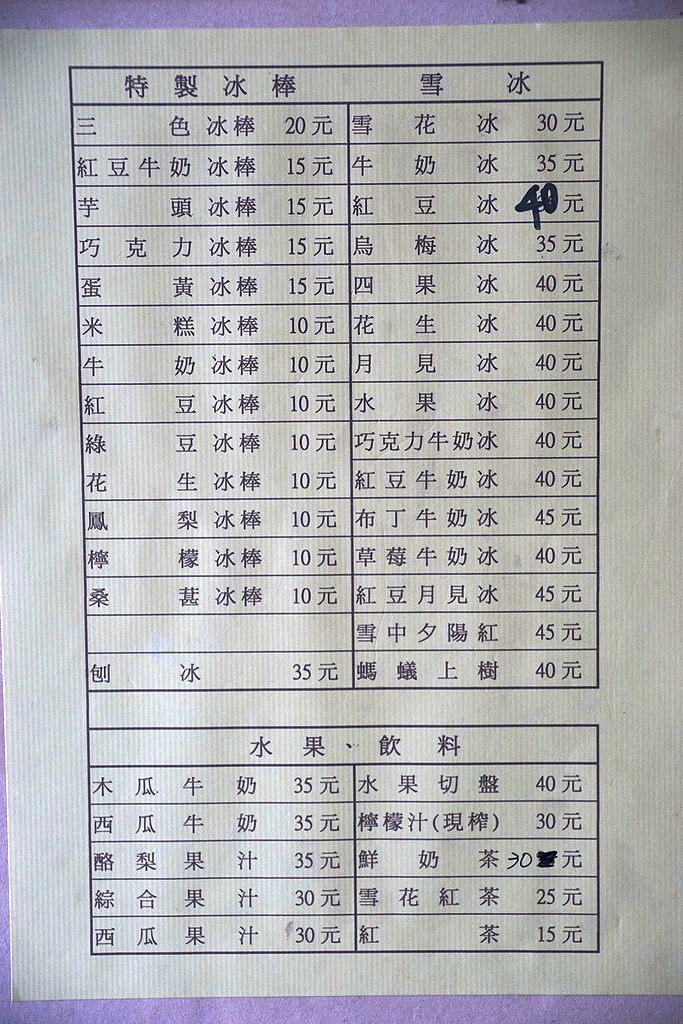 特製冰棒 雪冰
三色冰棒 20元 雪花冰 30元
紅豆牛奶冰棒 15元 牛奶冰 35元
芋頭冰棒 15元 紅豆冰 40元
巧克力冰棒 15元 烏梅冰 35元
蛋黃冰棒 15元 四果冰 40元
米糕冰棒 10元 花生冰 40元
牛奶冰棒 10元 月見冰 40元
紅豆冰棒 10元 水果冰 40元
綠豆冰棒 10元 巧克力牛奶冰 40元
花生冰棒 10元 紅豆牛奶冰 40元
鳳梨冰棒 10元 布丁牛奶冰 45元
檸檬冰棒 10元 草莓牛奶冰 40元
桑葚冰棒 10元 紅豆月見冰 45元
雪中夕陽紅 45元
刨冰 35元 螞蟻上樹 40元
水果、飲料
木瓜牛奶 35元 水果切盤 40元
西瓜牛奶 35元 檸檬汁(現榨) 30元
酪梨果汁 35元 鮮奶茶 30元
綜合果汁 30元 雪花紅茶 25元
西瓜果汁 30元 紅茶 15元